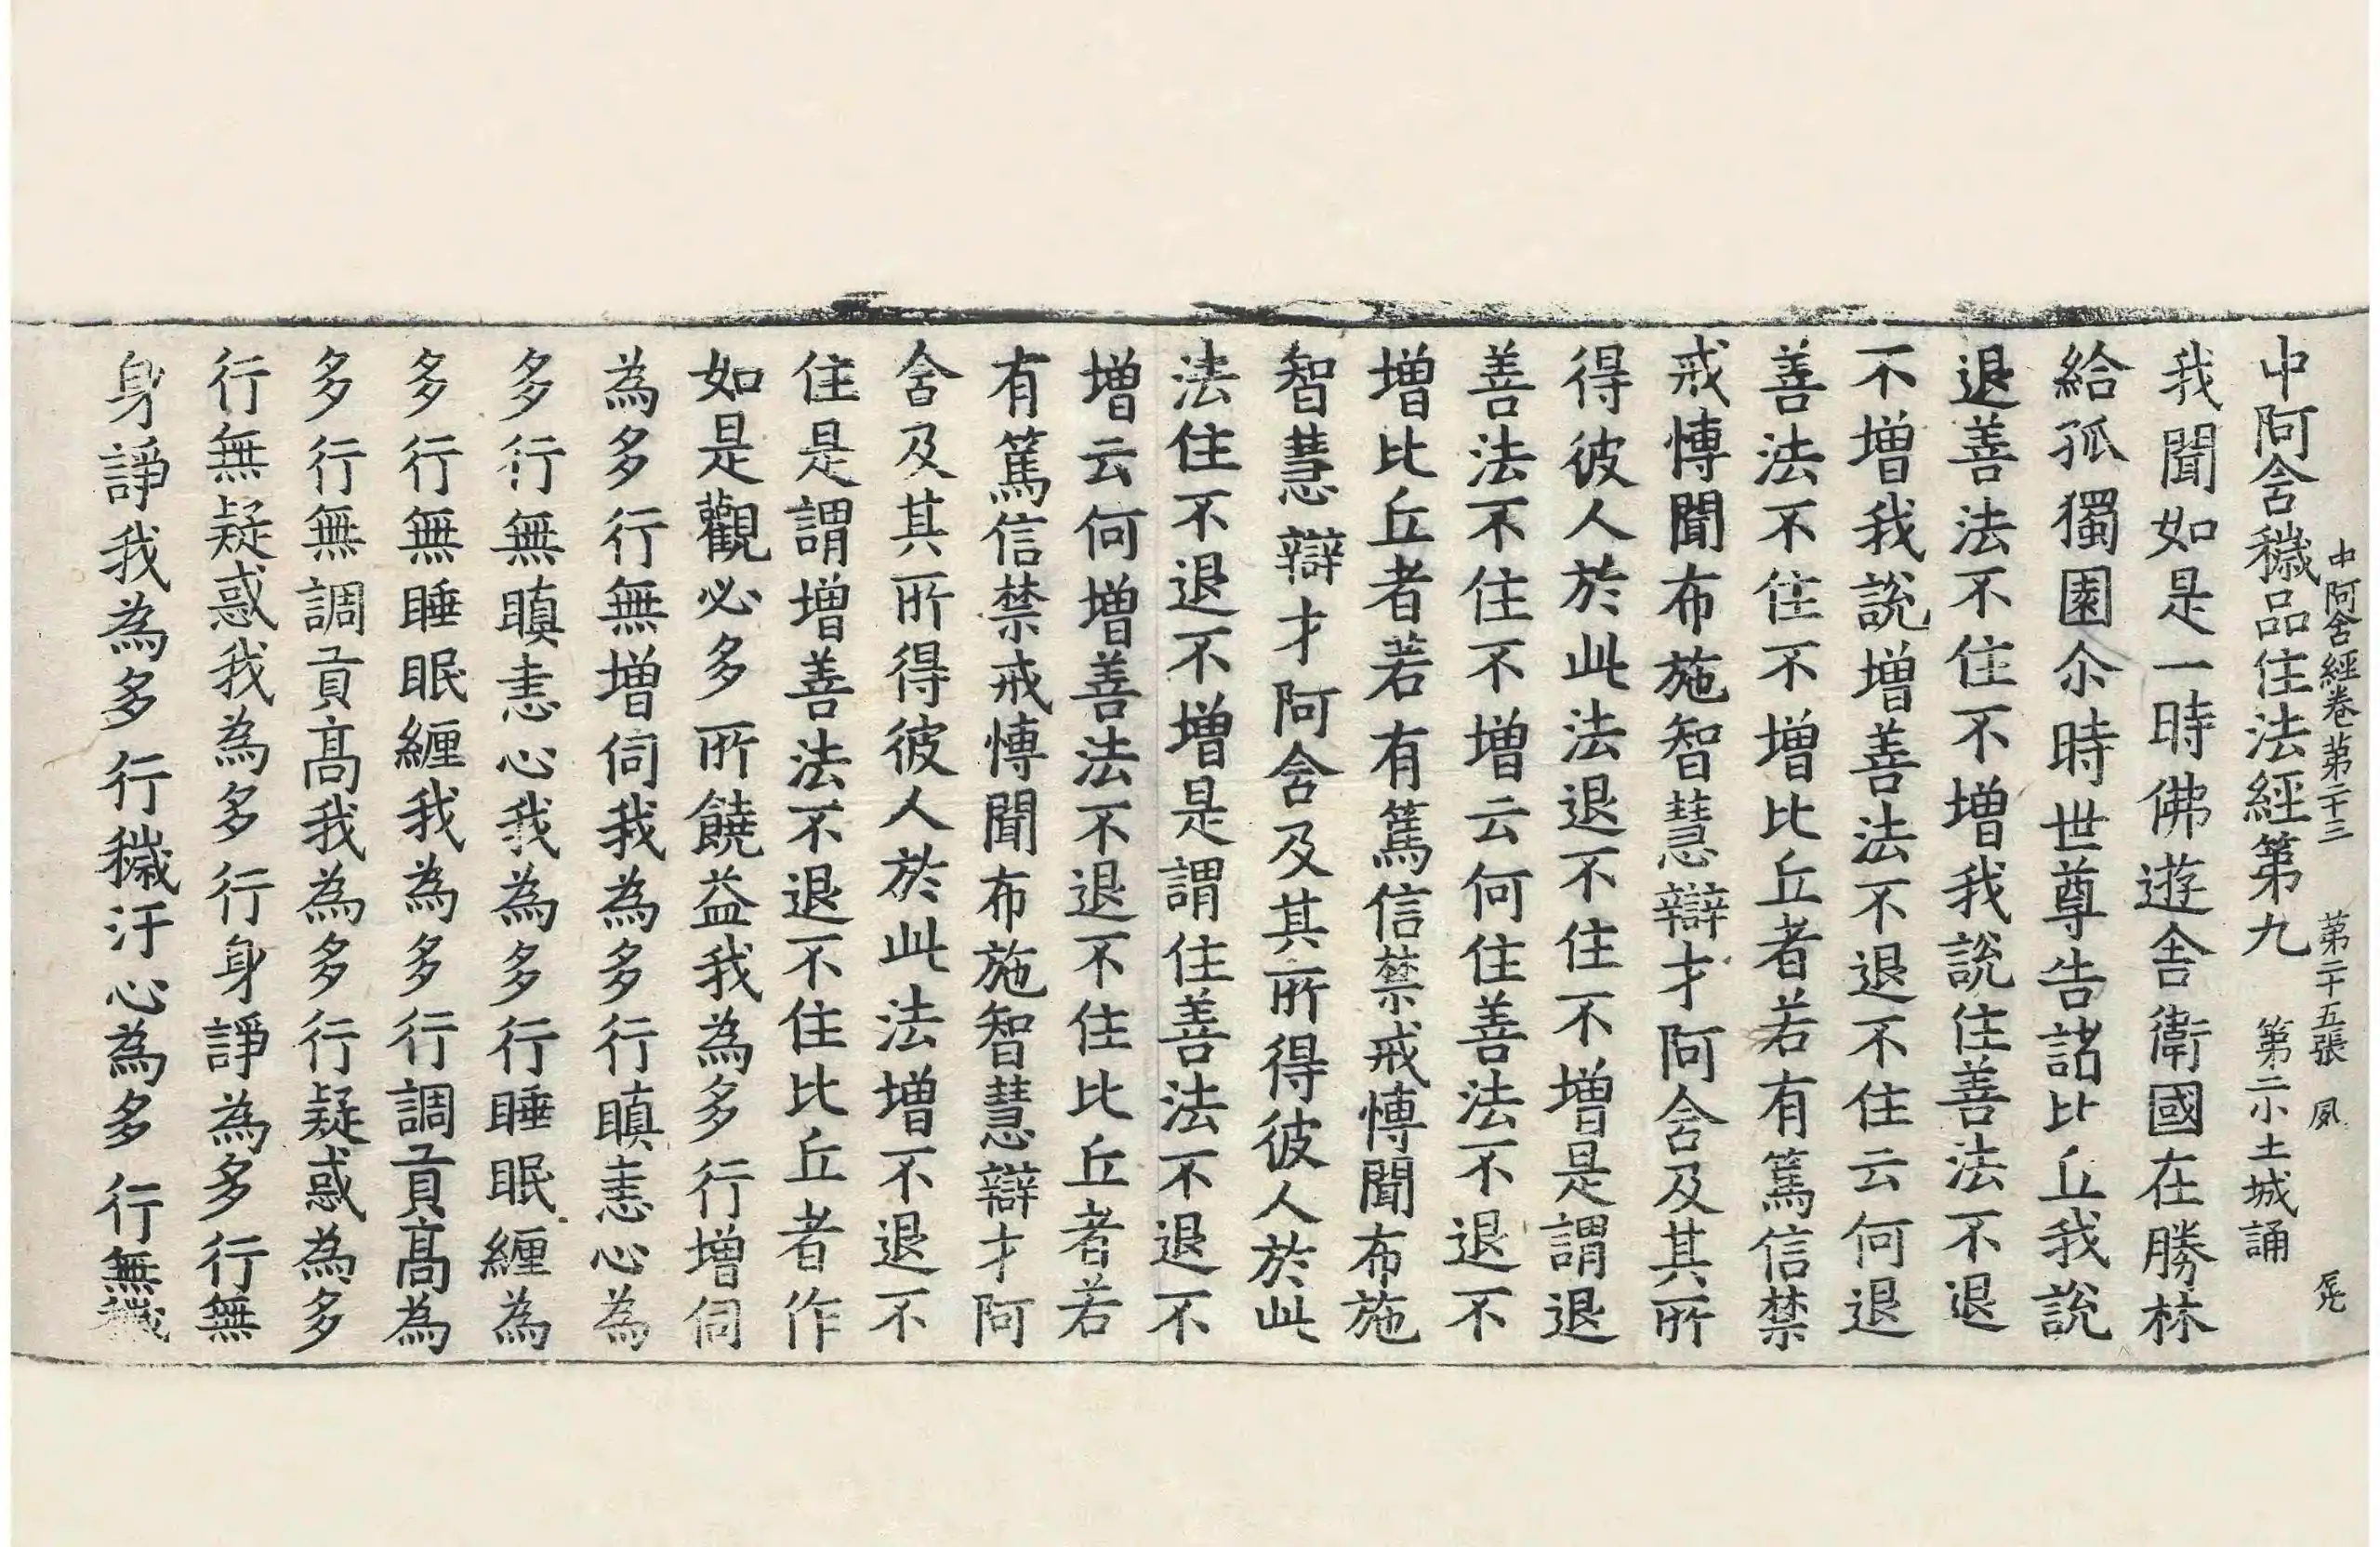 中阿含經卷第二十三 第二十五張 夙
中阿含穢品住法經第九 第二小土城誦
我聞如是一時佛遊舍衛國在勝林
給孤獨園尒時世尊告諸比丘我說
退善法不住不增我說住善法不退
不增我說增善法不退不住云何退
善法不住不增比丘者若有篤信禁
戒博聞布施智慧辯才阿含及其所
得彼人於此法退不住不增是謂退
善法不住不增云何住善法不退不
增比丘者若有篤信禁戒博聞布施
智慧辯才阿含及其所得彼人於此
法住不退不增是謂住善法不退不
增云何增善法不退不住比丘者若
有篤信禁戒博聞布施智慧辯才阿
含及其所得彼人於此法增不退不
住是謂增善法不退不住比丘者作
如是觀必多所饒益我為多行增伺
為多行無增伺我為多行瞋恚心為
多行無瞋恚心我為多行睡眠纏為
多行無睡眠纏我為多行調貢高為
多行無調貢高我為多行疑惑為多
行無疑惑我為多行身諍為多行無
身諍我為多行穢汙心為多行無穢